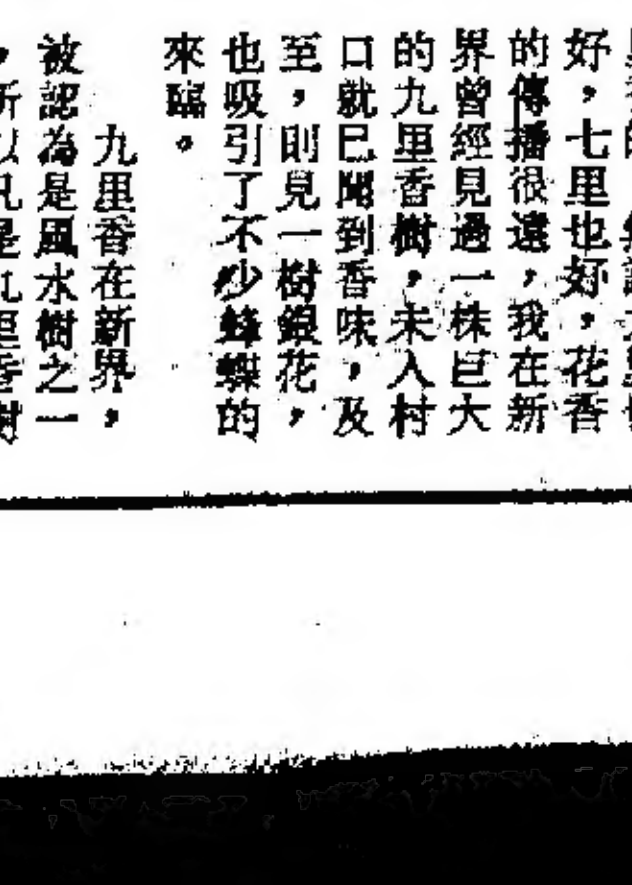 好，七里也好，花香
的傳播很遠，我在新
界曾經見過一株巨大
的九里香樹，未入村
口就已聞到香味，及
至，則見一樹銀花，
也吸引了不少蜂蝶的
來臨。
九里香在新界，
被認為是風水樹之一